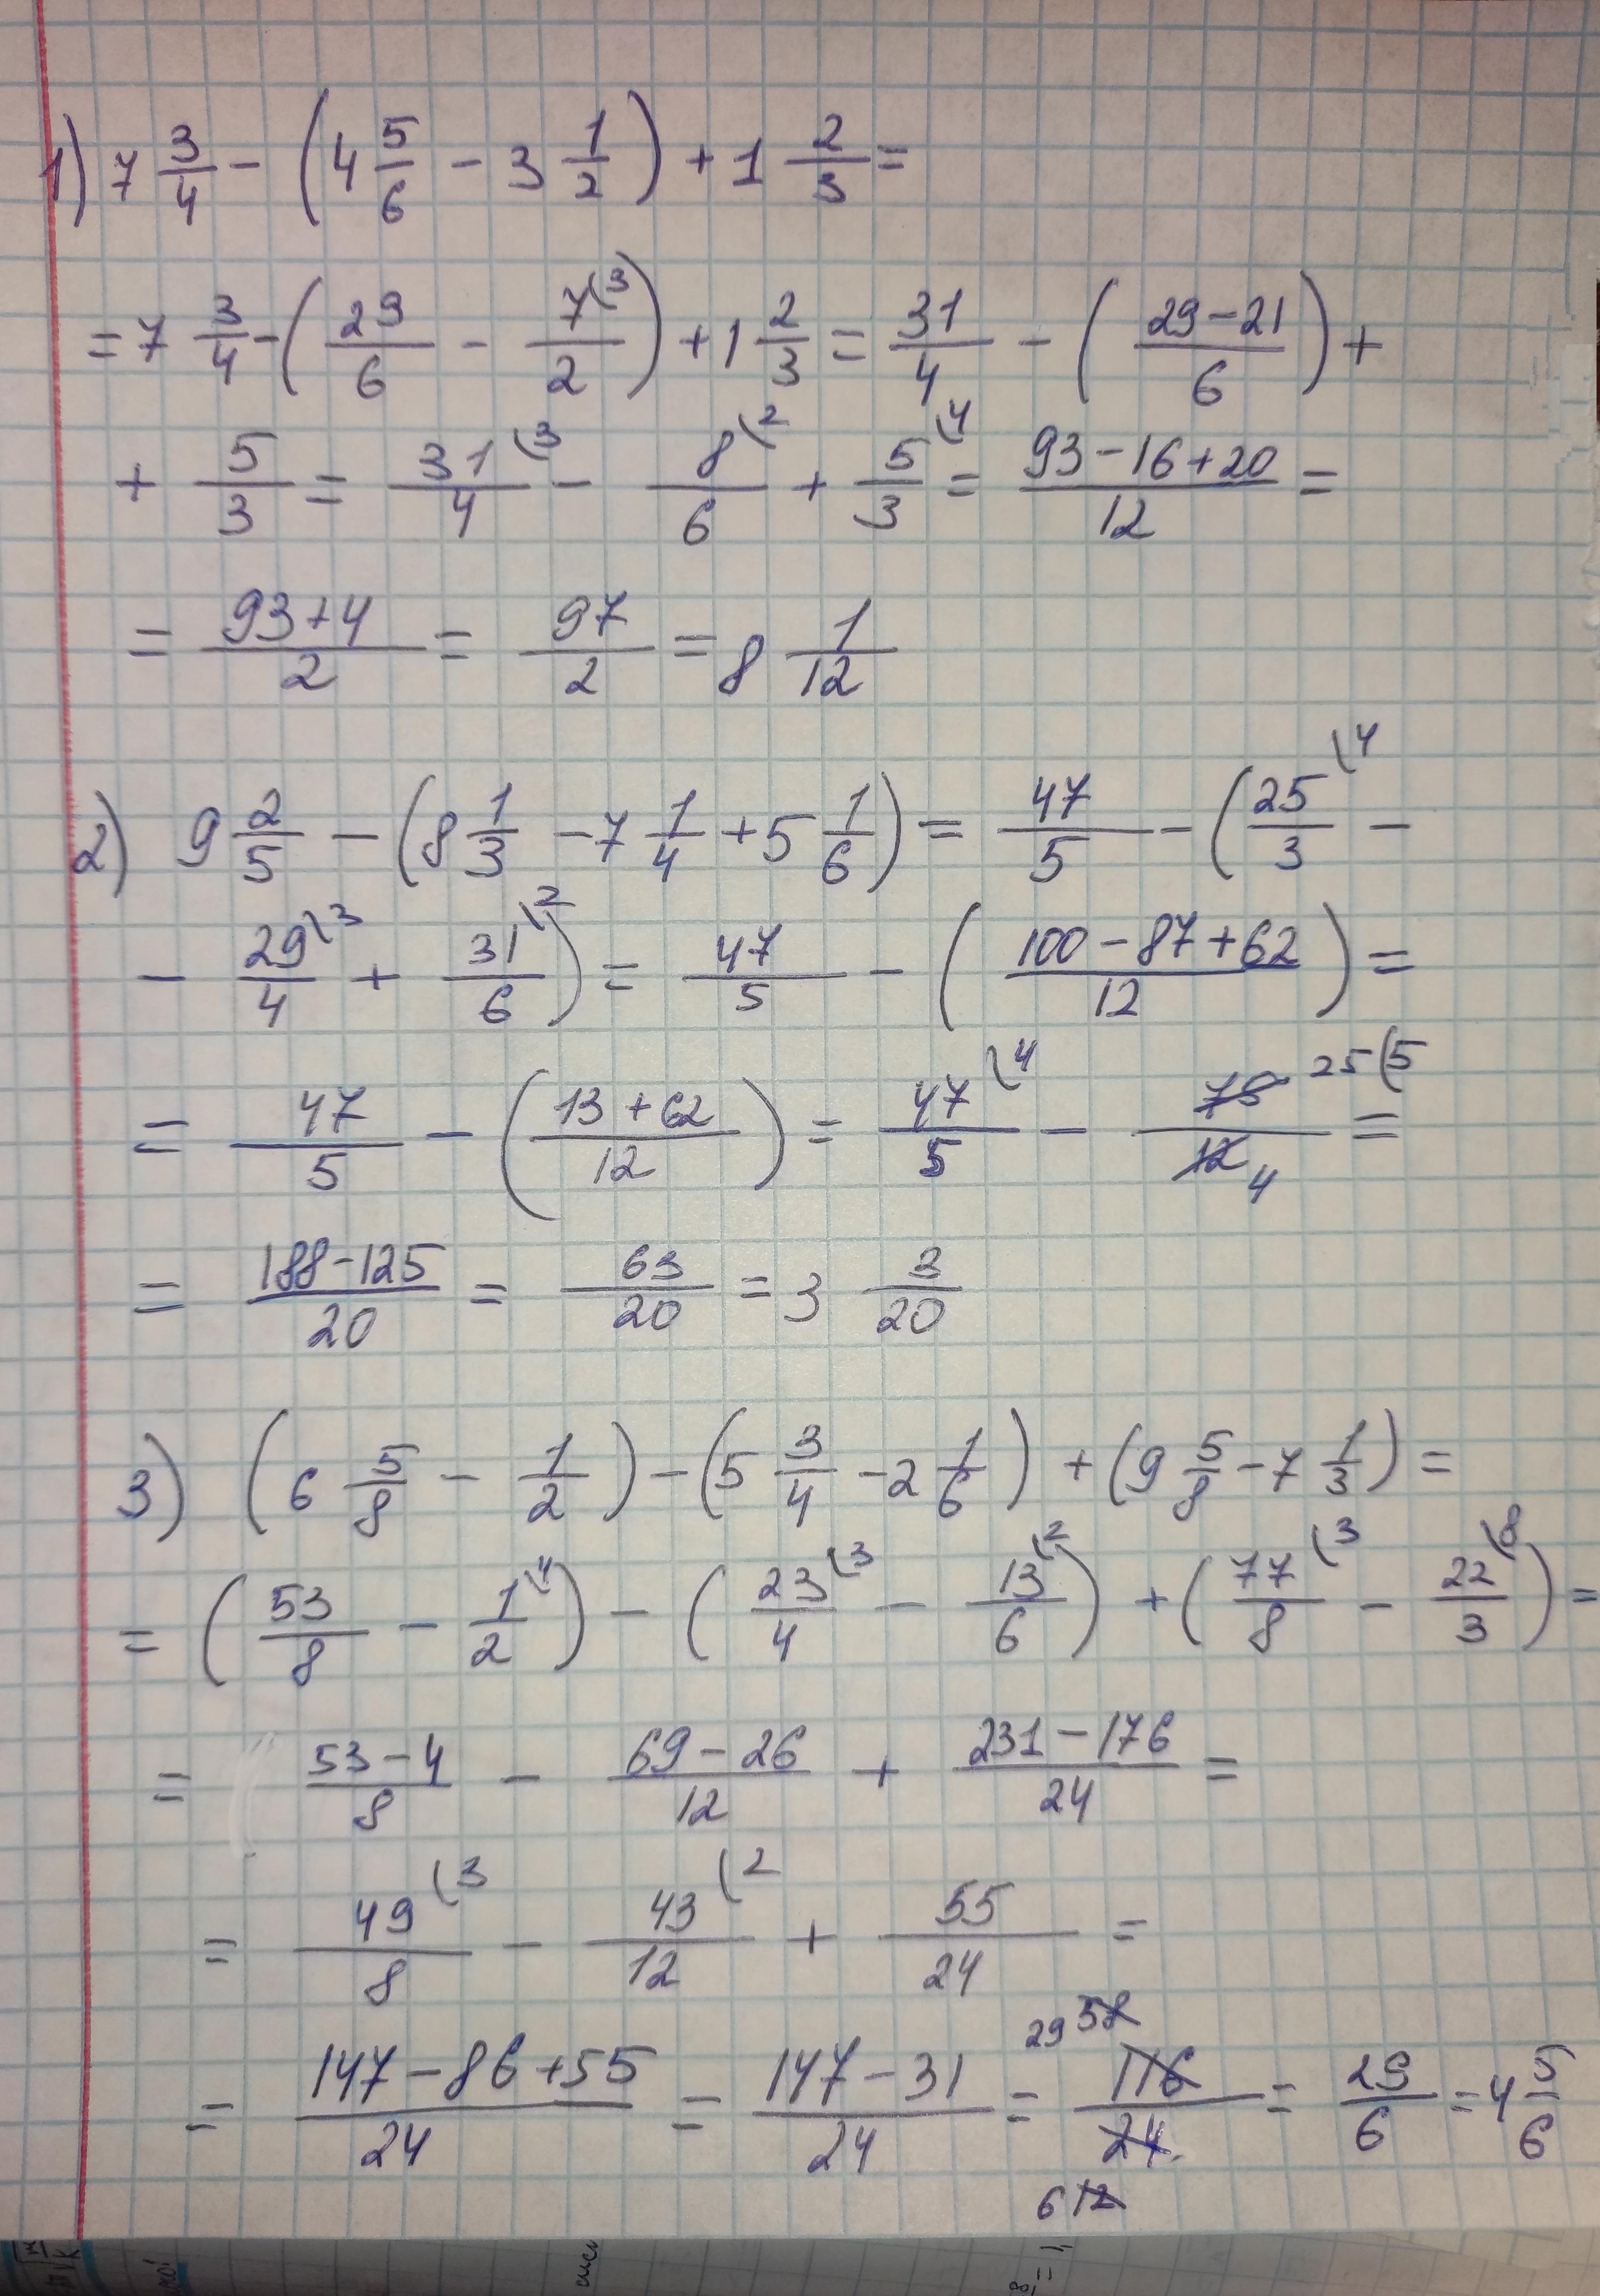 1) 7 3/4 - (4 5/6 - 3 1/2) + 1 2/3 =
= 7 3/4 - (29/6 - 7(3/2) + 1 2/3 = 31/4 - ((29-21)/6) +
+ 5/3 = 31(3/4 - 8(2/6 + 5(4/3 = (93-16+20)/12 =
= (93+4)/2 = 97/2 = 8 1/12
2) 9 2/5 - (8 1/3 - 7 1/4 + 5 1/6) = 47/5 - (25(4/3 -
- 29(3/4 + 31(2/6) = 47/5 - ((100-87+62)/12) =
= 47/5 - ((13+62)/12) = 47(4/5 - 75 25(5/12 4 =
= (188-125)/20 = 63/20 = 3 3/20
3) (6 5/8 - 1/2) - (5 3/4 - 2 1/6) + (9 5/8 - 7 1/3) =
= (53/8 - 1(4/2) - (23(3/4 - 13(2/6) + (77(3/8 - 22(8/3) =
= (53-4)/8 - (69-26)/12 + (231-176)/24 =
= 49(3/8 - 43(2/12 + 55/24 =
= (147-86+55)/24 = (147-31)/24 = 29 58 116/24 6 12 = 29/6 = 4 5/6